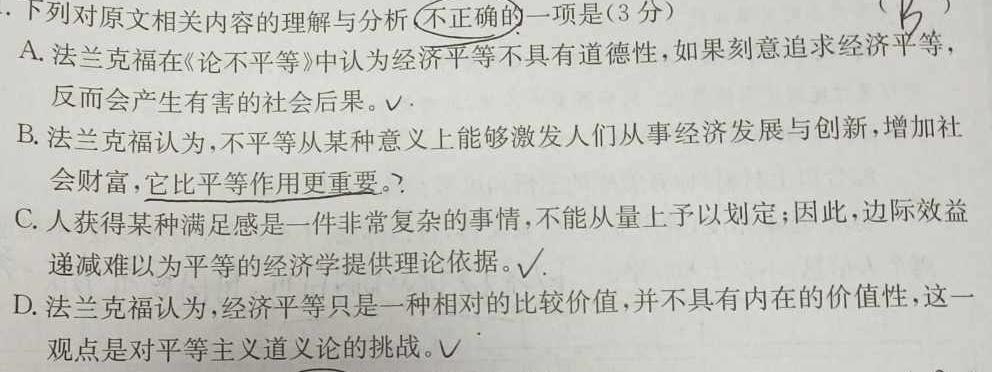 . 下列对原文相关内容的理解与分析,不正确的一项是(3分) ( B )
A. 法兰克福在《论不平等》中认为经济平等不具有道德性,如果刻意追求经济平等,
反而会产生有害的社会后果。✓.
B. 法兰克福认为,不平等从某种意义上能够激发人们从事经济发展与创新,增加社
会财富,它比平等作用更重要。?
C. 人获得某种满足感是一件非常复杂的事情,不能从量上予以划定;因此,边际效益
递减难以为平等的经济学提供理论依据。✓.
D. 法兰克福认为,经济平等只是一种相对的比较价值,并不具有内在的价值性,这一
观点是对平等主义道义论的挑战。✓